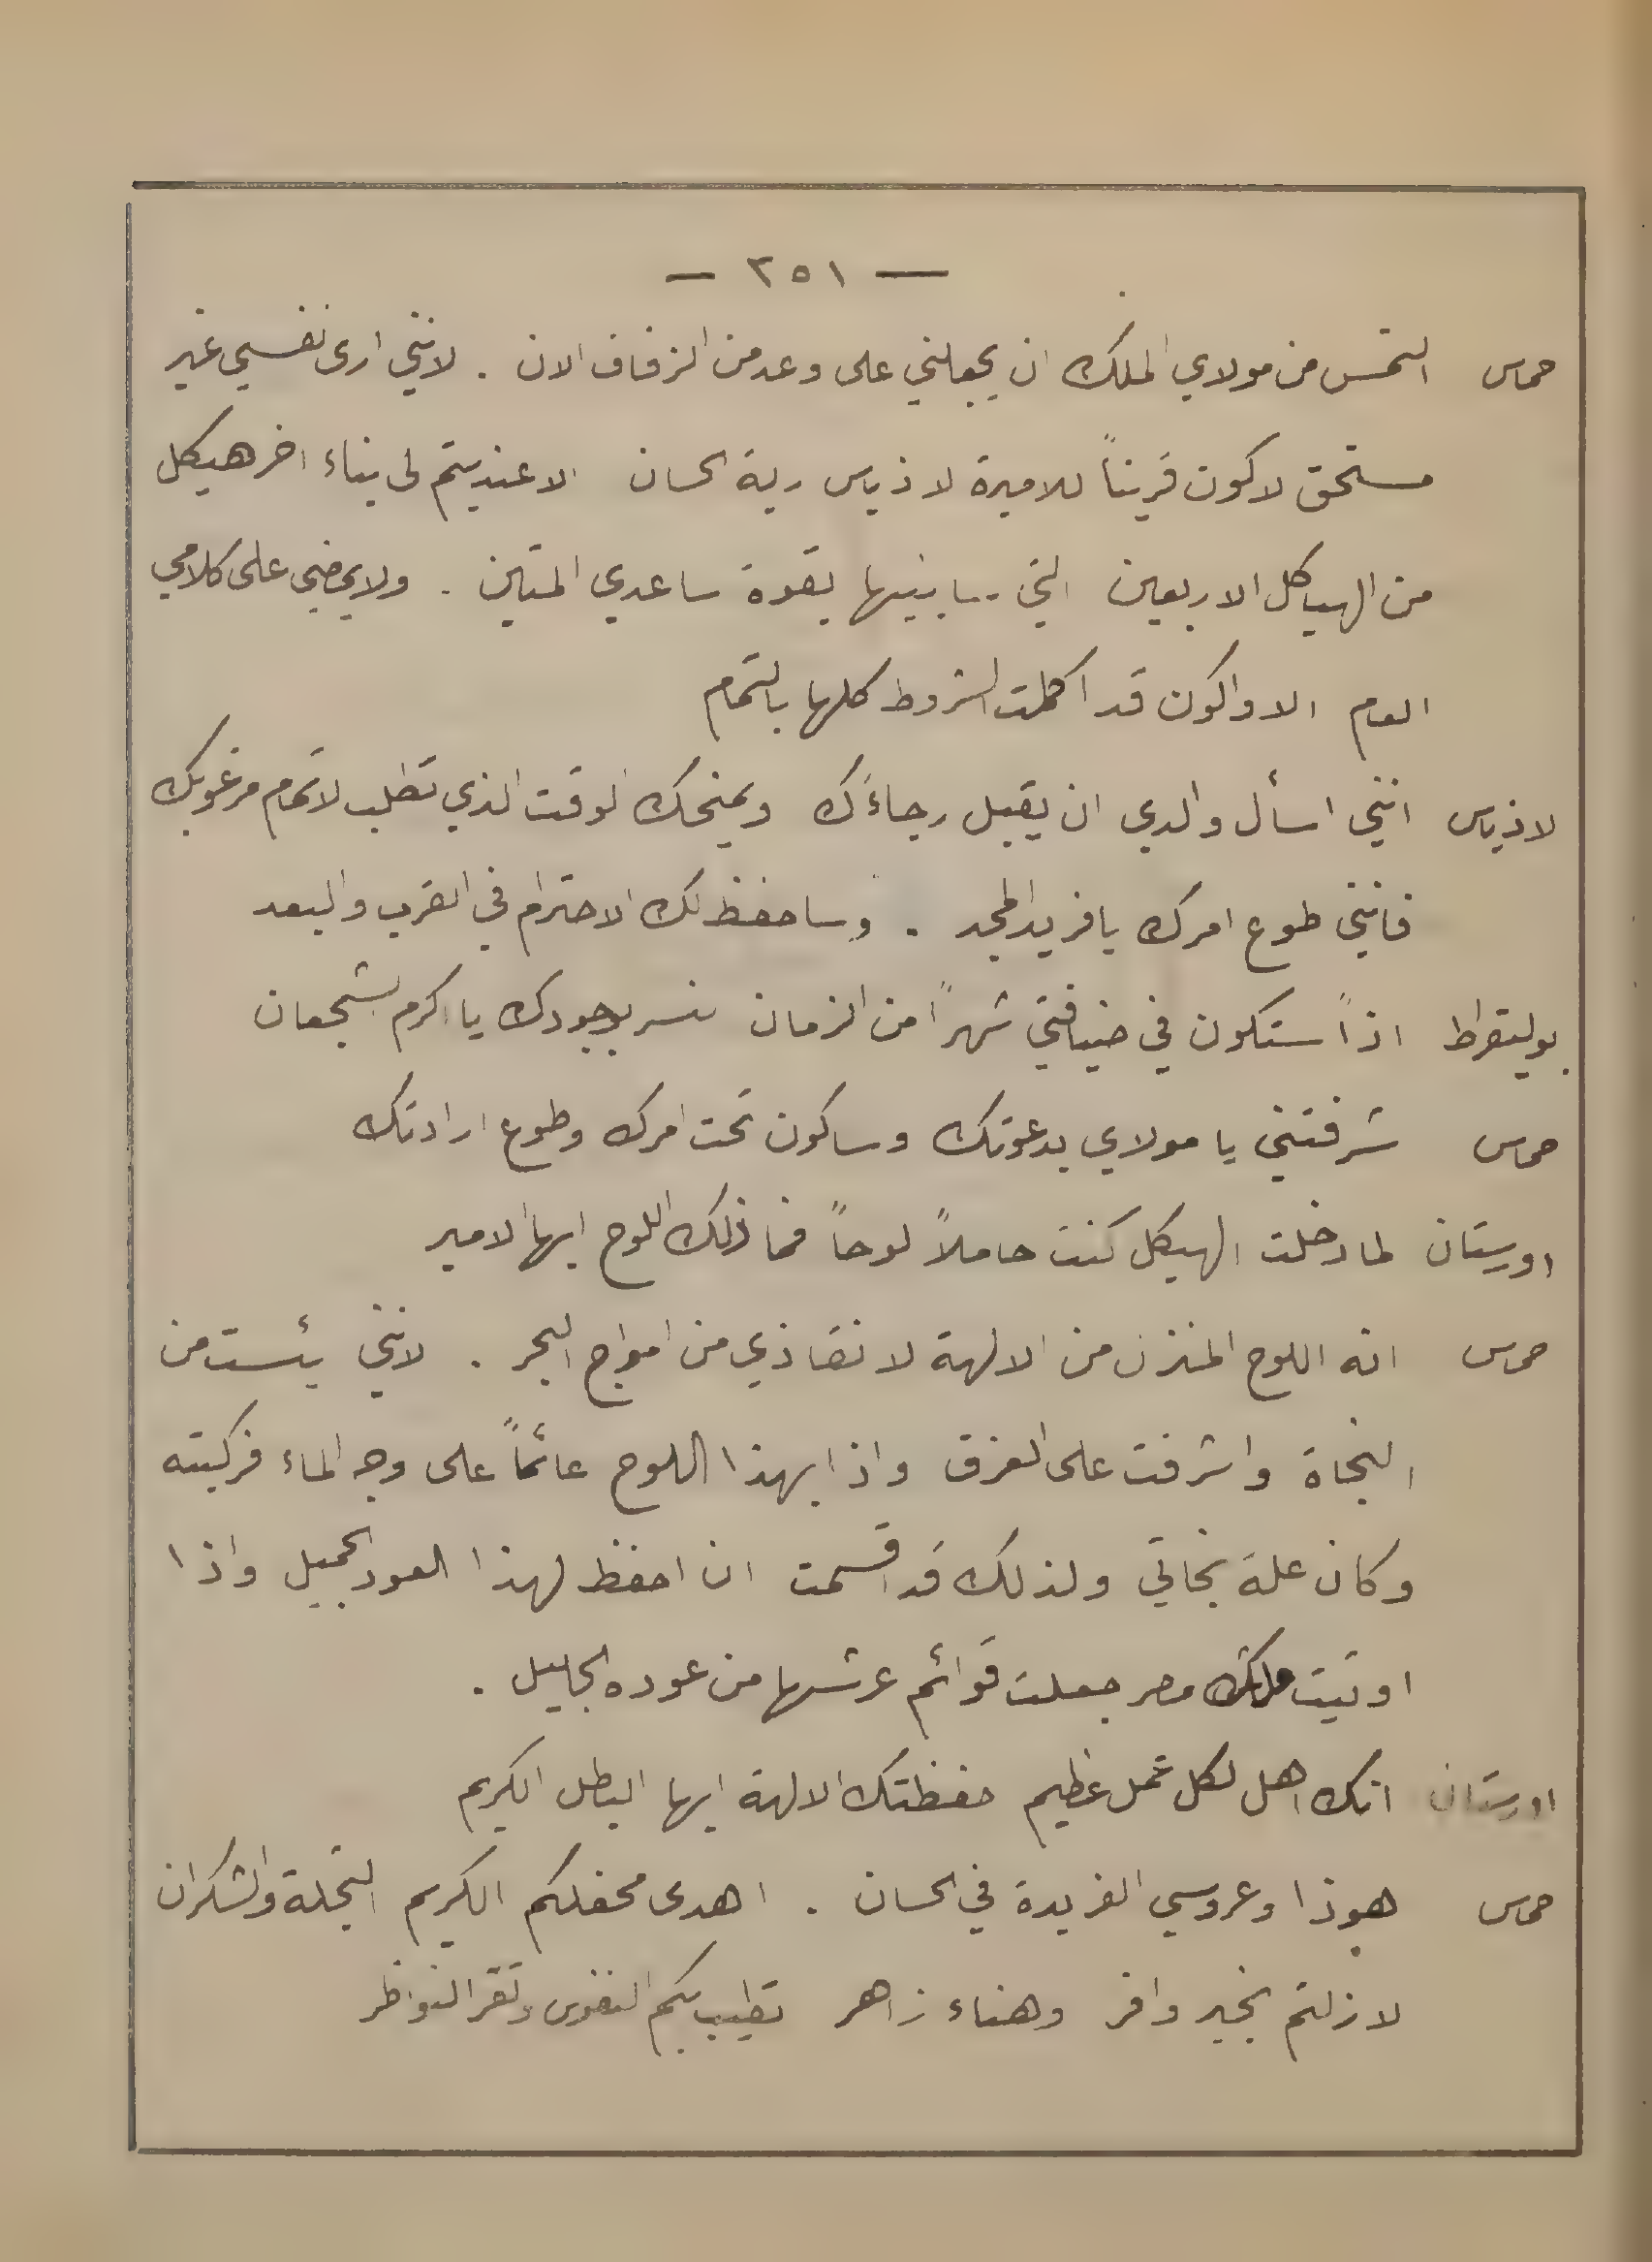 — ٢٥١ —
حماس التمس من مولاي الملك ان يجعلني على وعد من الزفاف الان . لانني ارى نفسي غير
مستحق لاكون قريناً للاميرة لاذياس ربة الحسان الا عند يتم لي بناء اخر هيكل
من الهياكل الاربعين التي سابنيها بقوة ساعدي المتين . ولا يمضي على كلامي
العام الا واكون قد اكملت الشروط كلها بالتمام
لاذياس انني اسأل والدي ان يقبل رجاءَك ويمنحك الوقت الذي تطلب لاتمام مرغوبك
فانني طوع امرك يا فريد المجد . وساحفظ لك الاحترام في القرب والبعد
بوليتقراط اذاً ستكون في ضيافتي شهراً من الزمان نسر بوجودك يا اكرم الشجعان
حماس شرفتني يا مولاي بدعوتك وساكون تحت امرك وطوع ارادتك
اورستان لما دخلت الهيكل كنت حاملاً لوحاً فما ذلك اللوح ايها الامير
حماس انه اللوح المنزل من الالهة لانقاذي من امواج البحر . لانني يئست من
النجاة واشرفت على الغرق واذا بهذا اللوح عائماً على وجه الماء فركبته
وكان علة نجاتي ولذلك قد اقسمت ان احفظ لهذا العود الجميل واذا
اوتيت ملك مصر جعلت قوائم عرشها من عوده الجليل .
اورستان انك اهل لكل عمل عظيم حفظتك الالهة ايها البطل الكريم
حماس هوذا وعروسي الفريدة في الحسان . اهدى محفلكم الكريم التجلة والشكران
لازلتم بخير وافر وهناء زاهر تطيب بكم النفوس وتقر النواظر